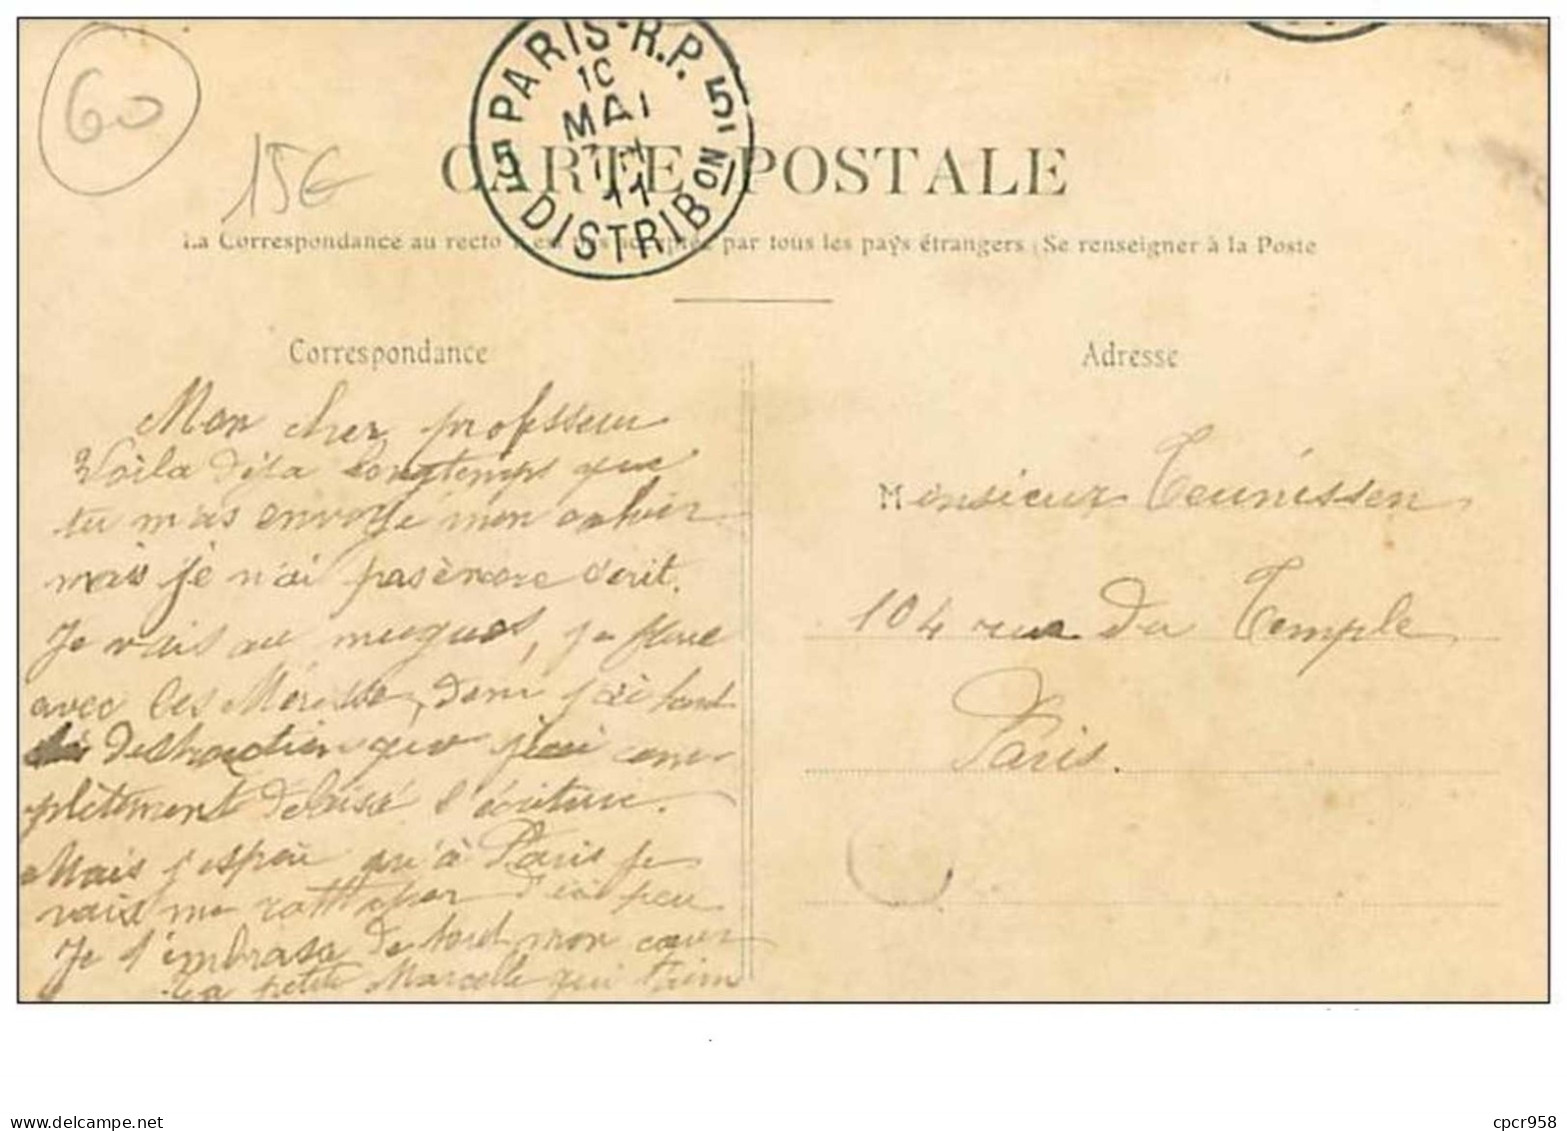 60
15€
PARIS·R.P.
5 5
10
MAI
11
DISTRIBON
CARTE POSTALE
La Correspondance au recto n'est pas acceptée par tous les pays étrangers (Se renseigner à la Poste
Correspondance
Mon cher professeur
Voila déja longtemps que
tu mas envoyé mon
mais je n'ai pas encore écrit.
Je vais au
avec les dont j'ai tant
de que j'ai com-
plètement délaissé l'écriture.
Mais j'espère qu'à Paris je
vais me rattraper d'ici peu
Je t'embrasse de tout mon cœur
Ta petite Marcelle qui t'aime
Adresse
Monsieur Teunissen
104 rue du Temple
Paris.
www.delcampe.net
cpcr958